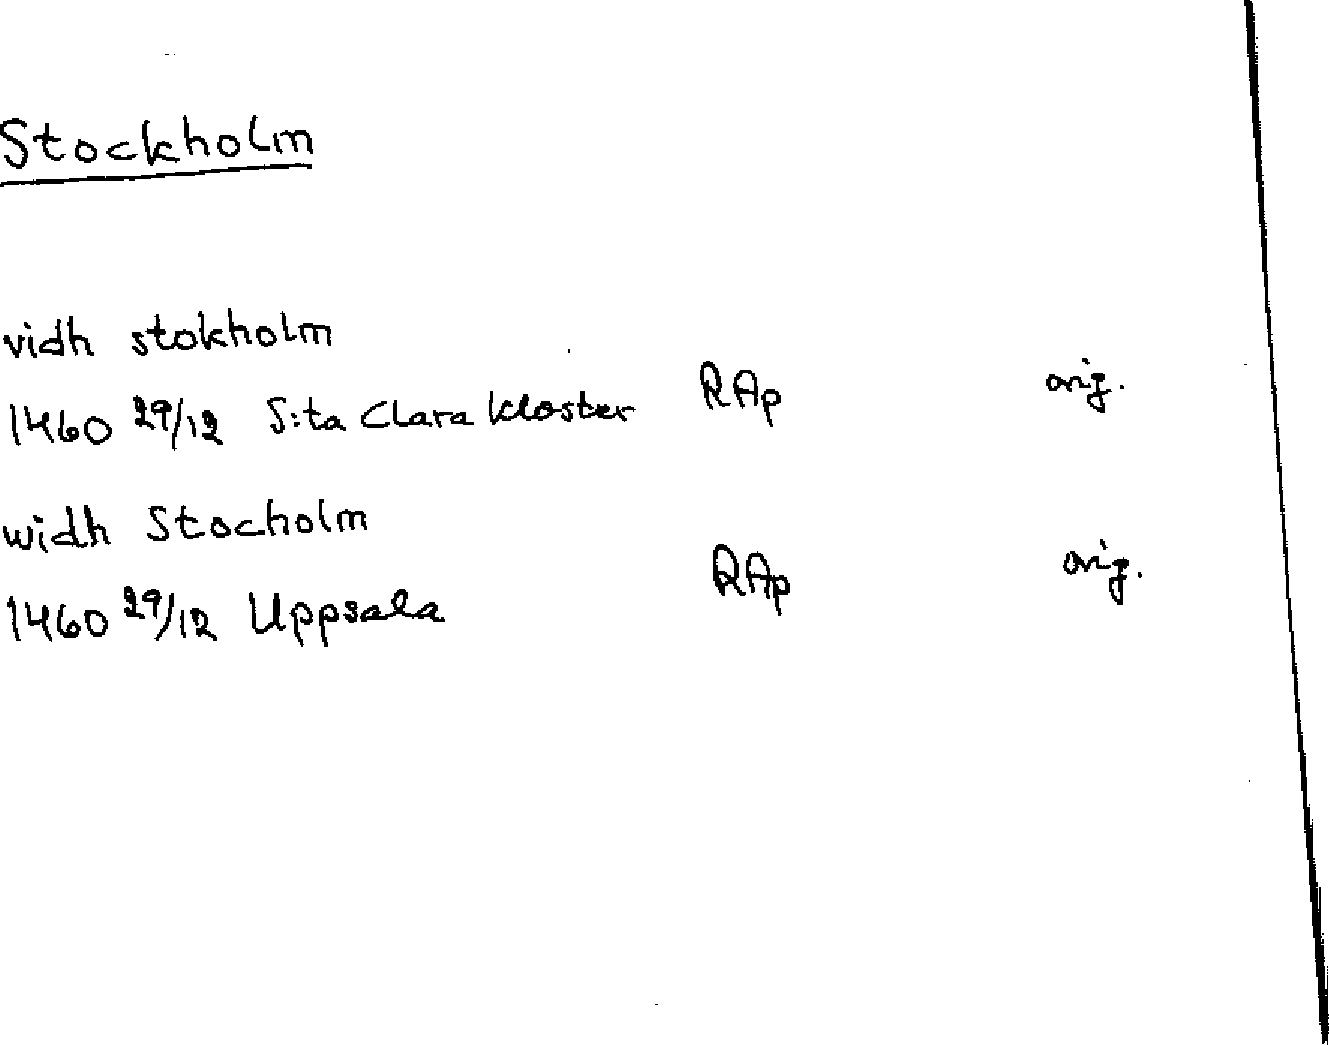 Stockholm
vidh stokholm
1460 29/12 S:ta Clara kloster RAp orig.
widh Stocholm
1460 29/12 Uppsala RAp orig.